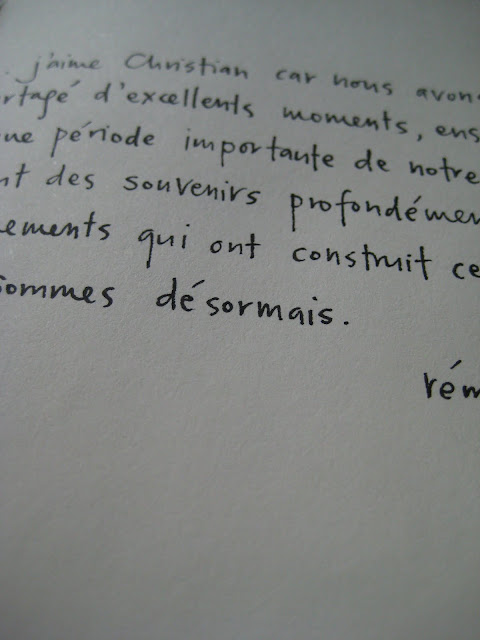 j'aime Christian car nous avon
rtagé d'excellents moments, ens
ne période importante de notre
nt des souvenirs profondémen
ements qui ont construit ce
sommes désormais.
rém